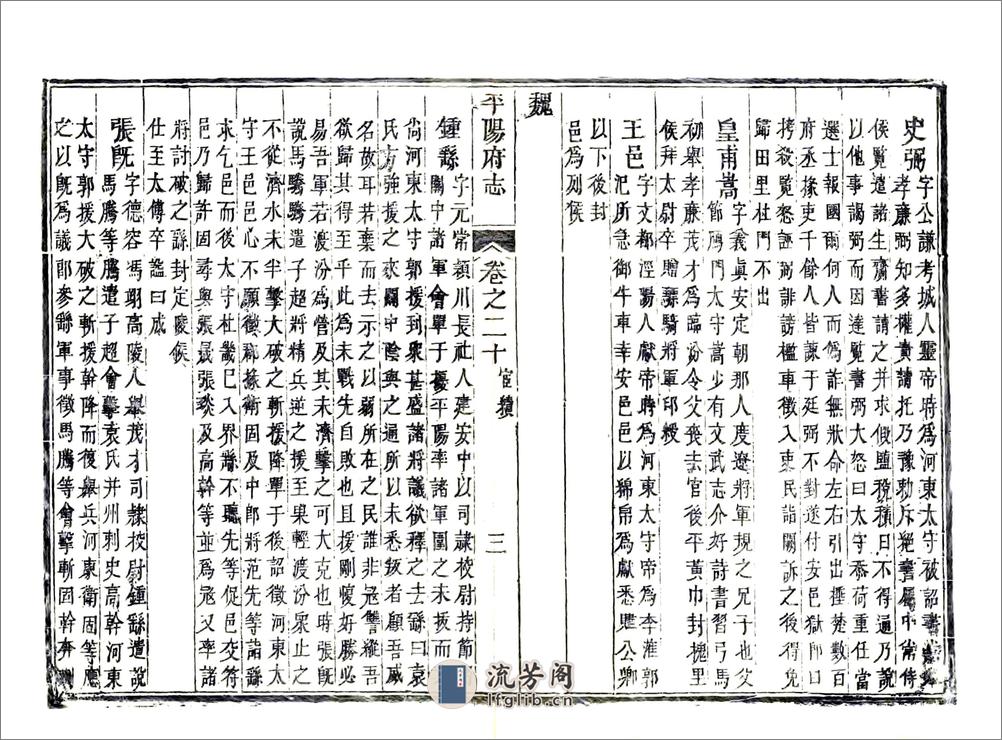 史弼字公謙考城人靈帝時爲河東太守被詔書當舉
孝廉弼知多權貴請托乃豫勅斥絕書屬中常侍
侯覽遣諸生齎書請之并求假鹽稅積日不得通乃說
以他事謁弼而因達覽書弼大怒曰太守忝荷重任當
選士報國爾何人而爲詐無狀命左右引出楚數百
府丞掾吏千餘人皆諫于延弼不對遂付安邑獄即日
拷殺覽怒誣弼誹謗檻車徵入吏民詣闕訴之後得免
歸田里杜門不出
皇甫嵩字義眞安定朝那人度遼將軍規之兄子也父
節鴈門太守嵩少有文武志介好詩書習弓馬
初舉孝廉茂才爲臨汾令父喪去官後平黃巾封槐里
侯拜太尉卒贈驃騎將軍印綬
王邑字文都涇陽人獻帝時爲河東太守帝爲李漼郭
汜所急御牛車幸安邑邑以綿帛爲獻悉賦公卿
以下後封
邑爲列侯
魏
平陽府志 卷之二十 宦績 三
鍾繇字元常潁川長社人建安中以司隷校尉持節督
關中諸軍會單于擾平陽率諸軍圍之未拔而
尚河東太守郭援到衆甚盛諸將議欲釋之去繇曰袁
氏方强援之來關中陰與之通所以未悉叛者顧吾威
名故耳若棄而去示之以弱所在之民誰非寇讐縱吾
欲歸其得至乎此爲未戰先自敗也且援剛愎好勝必
易吾軍若渡汾爲營及其未濟擊之可大克也時張旣
說馬騰騰遣子超將精兵逆之援至果輕渡汾衆止之
不從濟水未半擊大破之斬援又衛固及中郎將范先等詣繇
求乞王邑心不願徵郡掾衛固及中郎將范先等詣繇
求乞邑而後太守杜畿已入界繇不聽先等促邑交符
邑乃許固尋與張晟張琰及高幹等並爲寇又率諸
將討破之繇封定陵侯
仕至太傅卒謚曰成
張旣字德容馮翊高陵人舉茂才司隷校尉鍾繇遣說
馬騰等騰遣子超會擊袁氏并州刺史高幹河東
太守郭援大破之斬援幹降而復舉兵河東衛固等應
之以旣爲議郎參繇軍事徵馬騰等會擊斬固幹奔荆
流芳阁
lfglib.cn